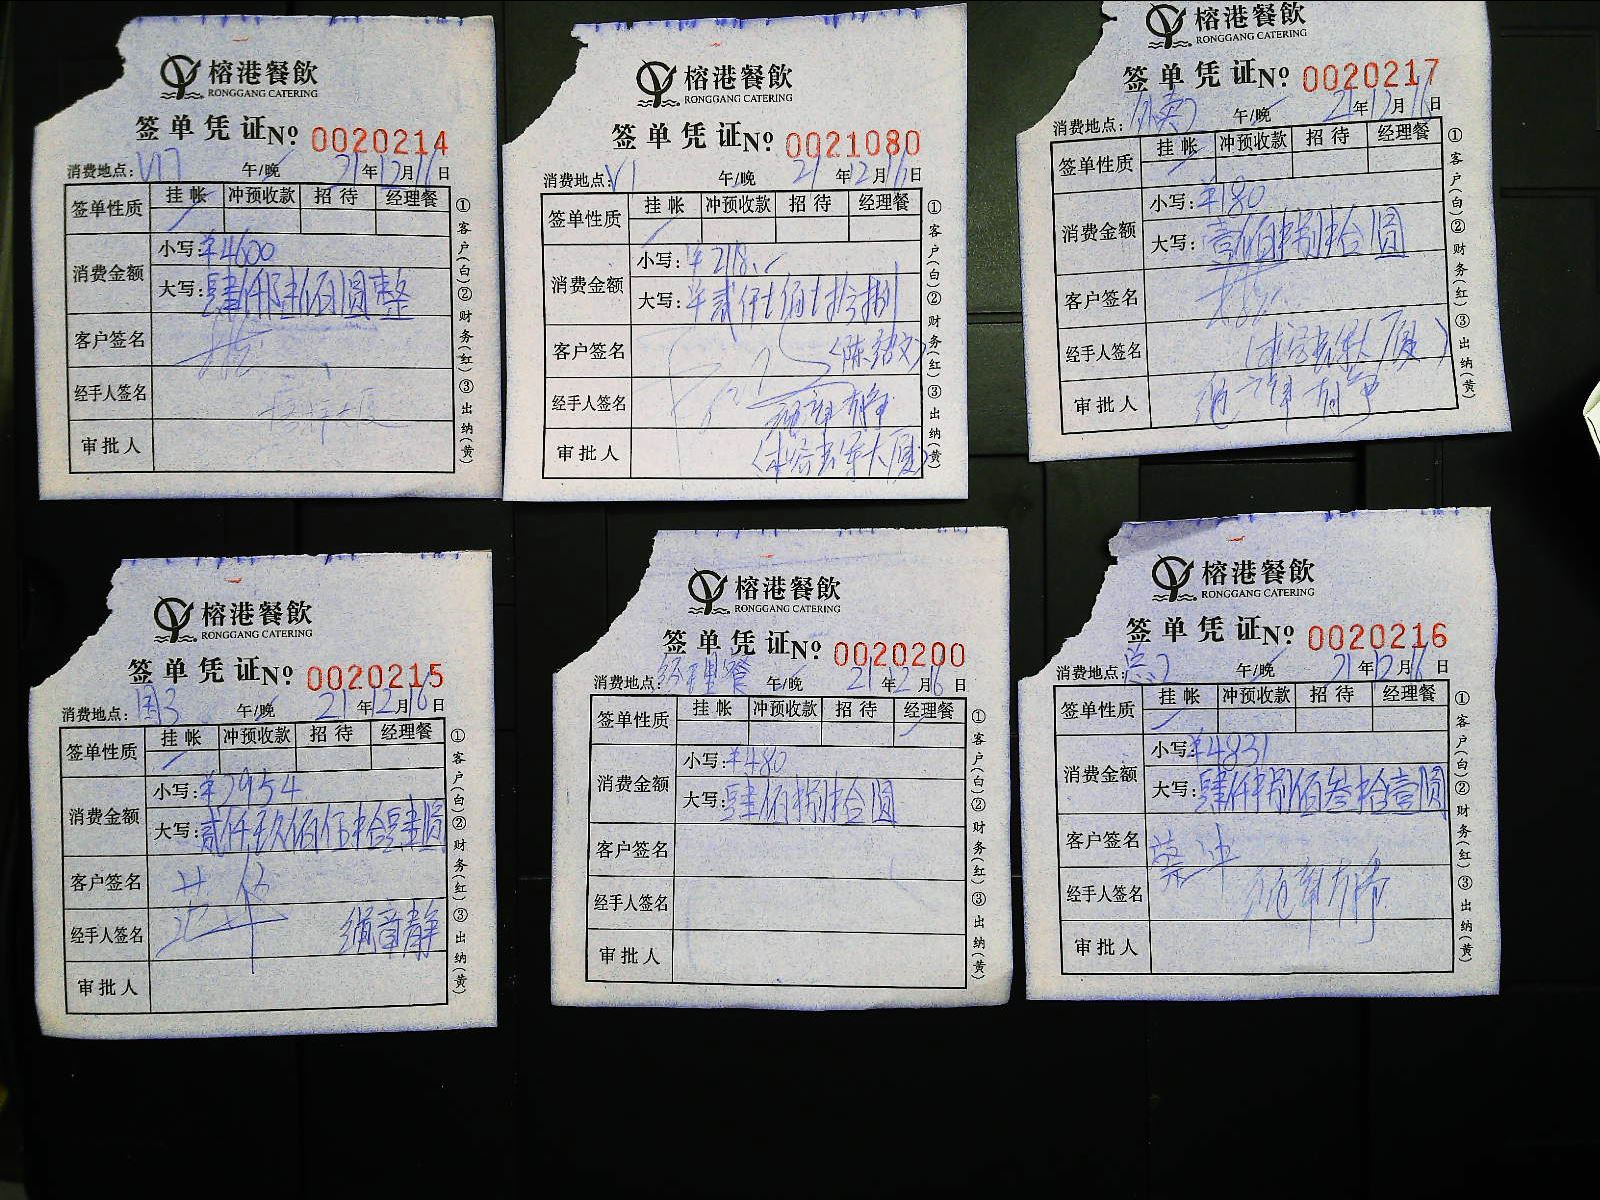 榕港餐飲
RONGGANG CATERING
签单凭证 № 0020214
消费地点: V17 午/晚 21年12月16日
签单性质 挂帐 冲预收款 招待 经理餐
消费金额 小写: ¥4600
大写: 肆仟陆佰圆整
客户签名
经手人签名
审批人
①客户(白)②财务(红)③出纳(黄)
榕港餐飲
RONGGANG CATERING
签单凭证 № 0021080
消费地点: V1 午/晚 21年12月16日
签单性质 挂帐 冲预收款 招待 经理餐
消费金额 小写:
大写:
客户签名
经手人签名
审批人
①客户(白)②财务(红)③出纳(黄)
榕港餐飲
RONGGANG CATERING
签单凭证 № 0020217
消费地点: 外卖 午/晚 21年12月16日
签单性质 挂帐 冲预收款 招待 经理餐
消费金额 小写: ¥180
大写: 壹佰捌拾圆
客户签名
经手人签名
审批人
①客户(白)②财务(红)③出纳(黄)
榕港餐飲
RONGGANG CATERING
签单凭证 № 0020215
消费地点: 午/晚 21年12月16日
签单性质 挂帐 冲预收款 招待 经理餐
消费金额 小写: ¥2954
大写: 贰仟玖佰伍拾肆圆
客户签名
经手人签名
审批人
①客户(白)②财务(红)③出纳(黄)
榕港餐飲
RONGGANG CATERING
签单凭证 № 0020200
消费地点: 经理餐 午/晚 21年12月16日
签单性质 挂帐 冲预收款 招待 经理餐
消费金额 小写: ¥480
大写: 肆佰捌拾圆
客户签名
经手人签名
审批人
①客户(白)②财务(红)③出纳(黄)
榕港餐飲
RONGGANG CATERING
签单凭证 № 0020216
消费地点: 午/晚 21年12月16日
签单性质 挂帐 冲预收款 招待 经理餐
消费金额 小写: ¥4831
大写: 肆仟捌佰叁拾壹圆
客户签名
经手人签名
审批人
①客户(白)②财务(红)③出纳(黄)